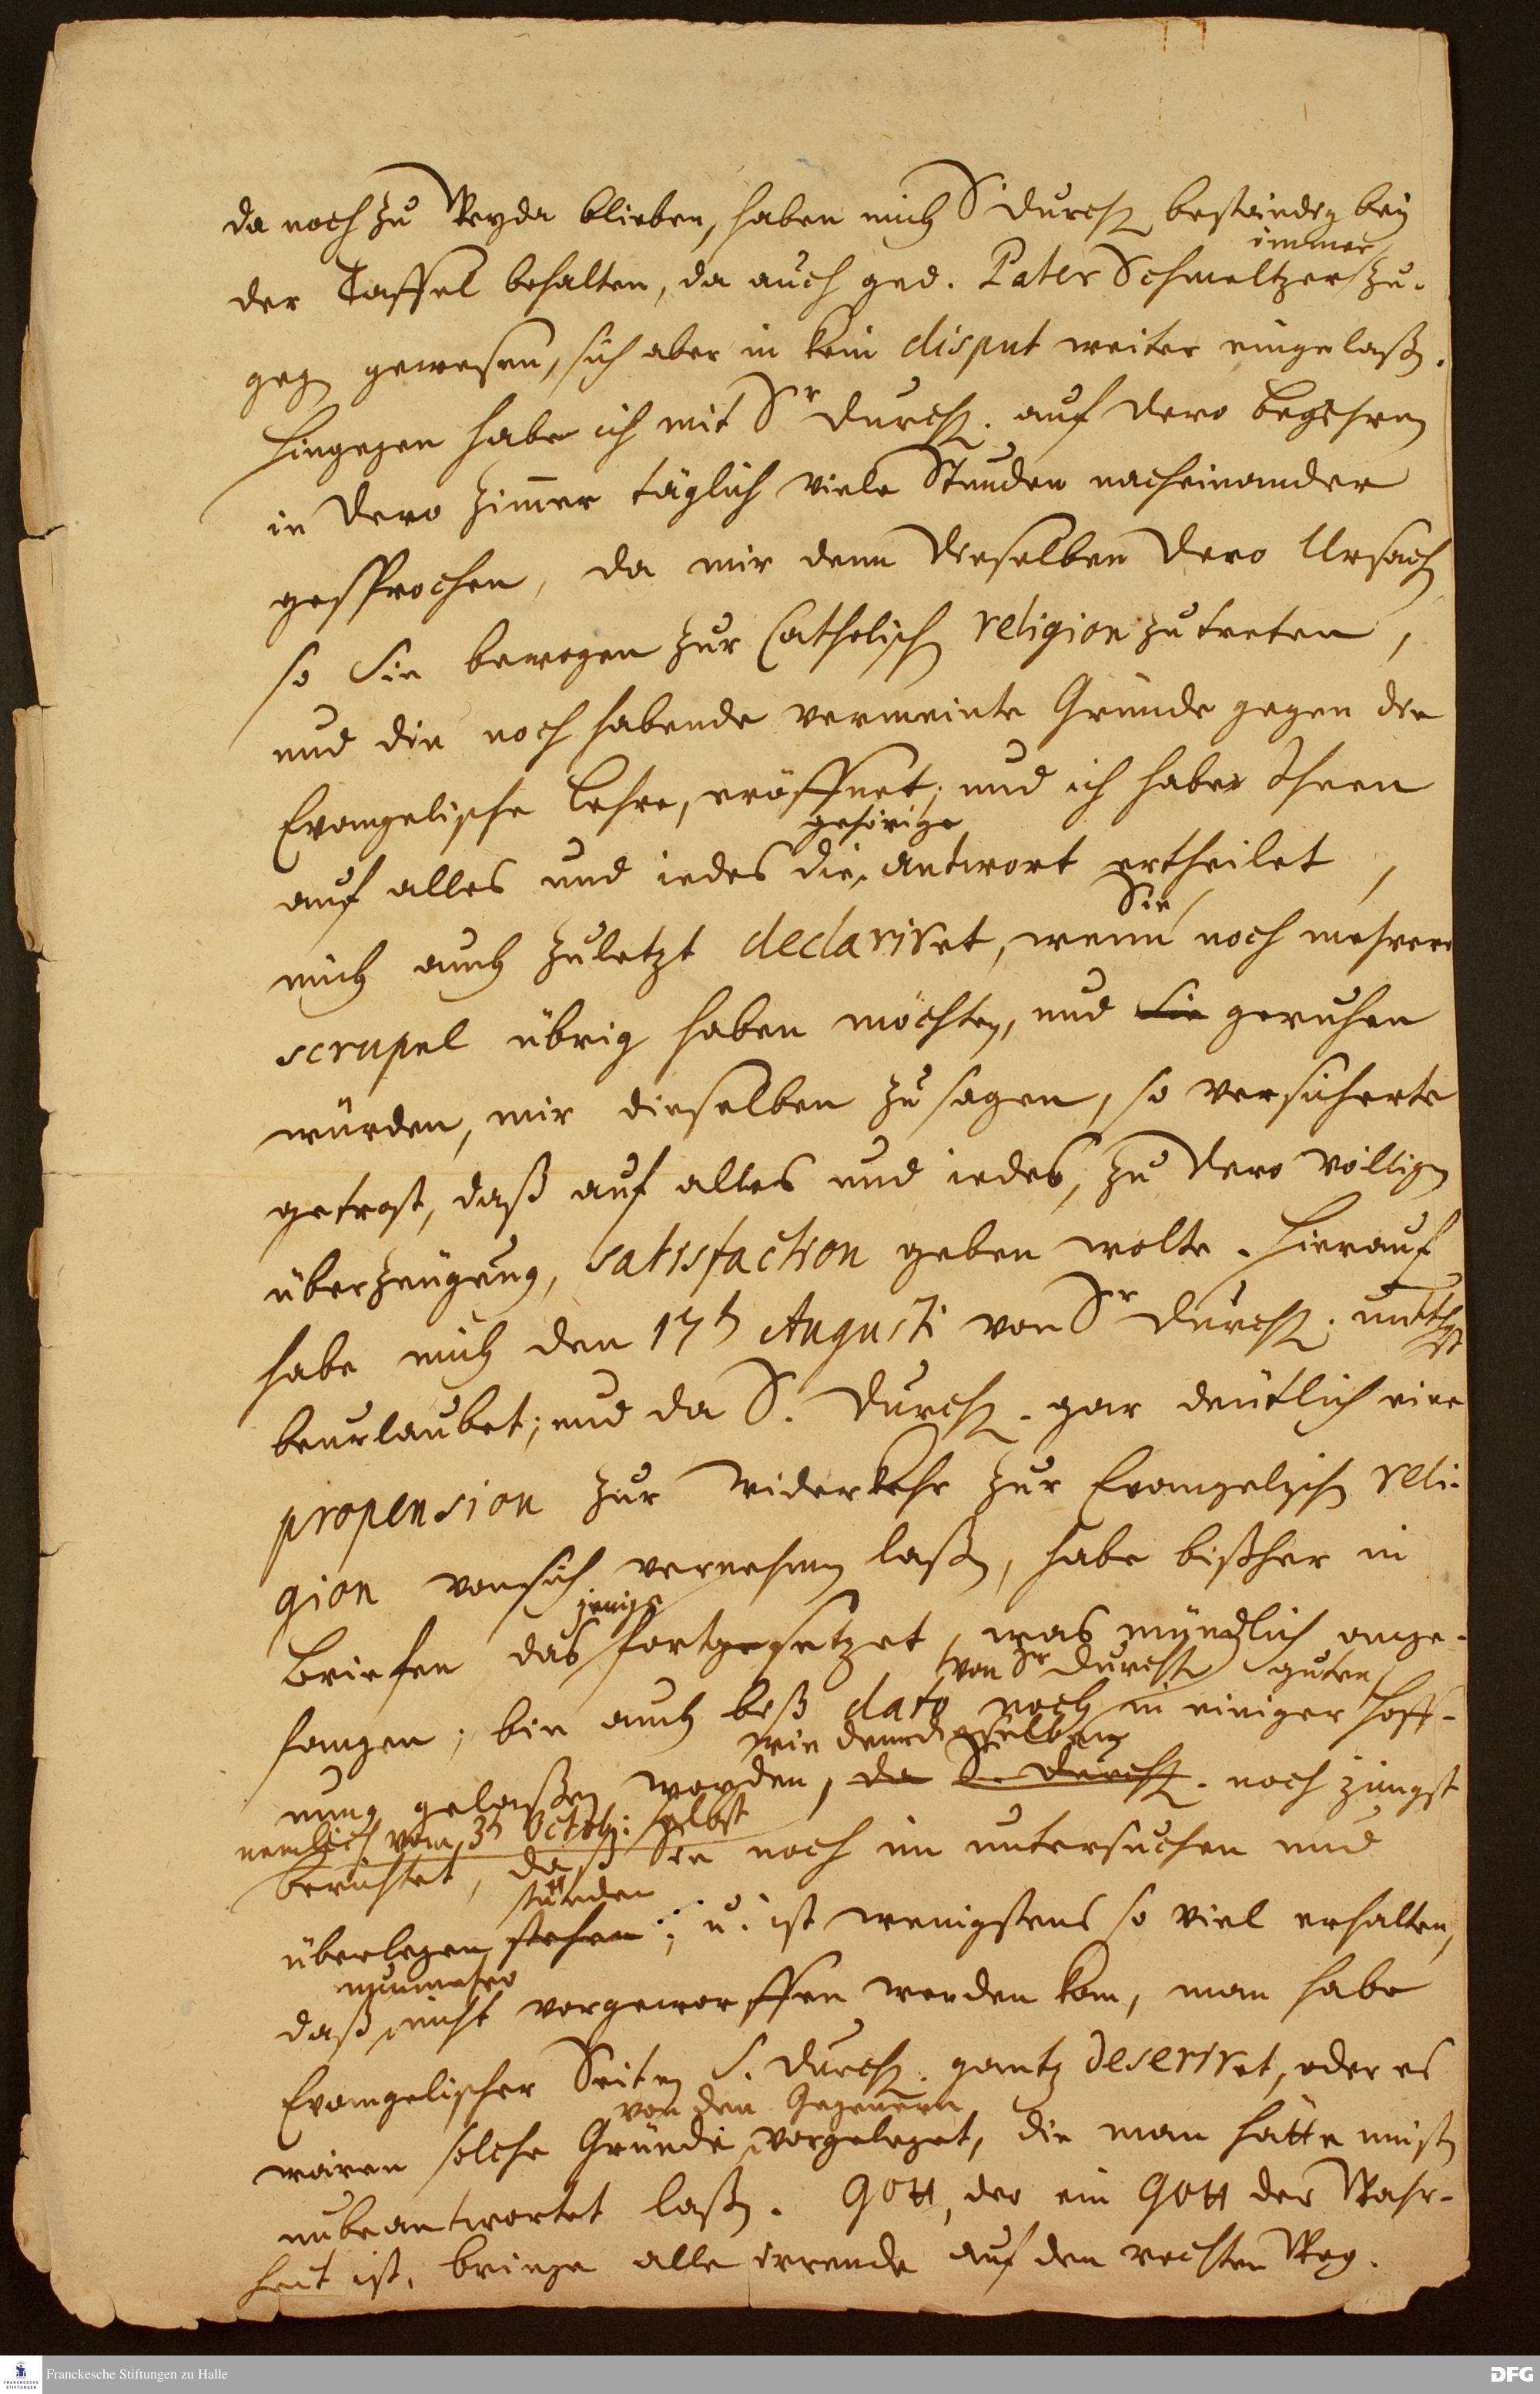 da noch zu Weyda blieben, haben mich S. Durchl. beständig bey
immer
der Taffel behalten, da auch ged. Pater Schmeltzer zu-
geg. gewesen, sich aber in kein disput weiter eingelaßen.
Hingegen habe ich mit Sr Durchl. auf dero begehren
in dero Zimmer täglich viele Stunden nacheinander
gesprochen, da mir denn dieselben dero Ursachen
so Sie bewogen zur Catholischen religion zu treten,
und die noch habende vermeinte Gründe gegen die
Evangelische Lehre, eröffnet; und ich habe Ihnen
gehörige
auf alles und iedes die antwort ertheilet,
Sie
mich auch zuletzt declariret, wenn noch mehrere
scrupel übrig haben möchten, und Sie geruhen
würden, mir dieselben zu sagen, so versicherte
getrost, daß auf alles und iedes, zu dero völligen
überzeügung, satisfaction geben wolte. Hierauf
habe mich den 17ten Augusti von Sr Durchl.
beurlaubet; und da S. Durchl. gar deütlich eine
propension zur widerkehr zur Evangelischen reli-
gion von sich vernehmen laßen, habe bißher in
jenige
Briefen das fortgesetzet, was mündlich ange-
von Sr Durchl. guten
fangen; bin auch biß dato noch in einiger Hoff-
wie denn dieselben
nung gelaßen worden, da S. Durchl. noch jüngst
nemlich vom 3ten Octobr: selbst
berichtet, daß Sie noch im untersuchen und
stünden
überlegen stehen; u. ist wenigstens so viel erhalten,
nunmehro
daß nicht vorgeworffen werden kan, man habe
Evangelischer Seiten S. Durchl. gantz deseriret, oder es
von den Gegenern
wären solche Gründe vorgeleget, die man hätte müßen
unbeantwortet laßen. GOtt, der ein GOtt der Wahr-
heit ist, bringe alle irrende auf den rechten Weg.
Franckesche Stiftungen zu Halle
DFG